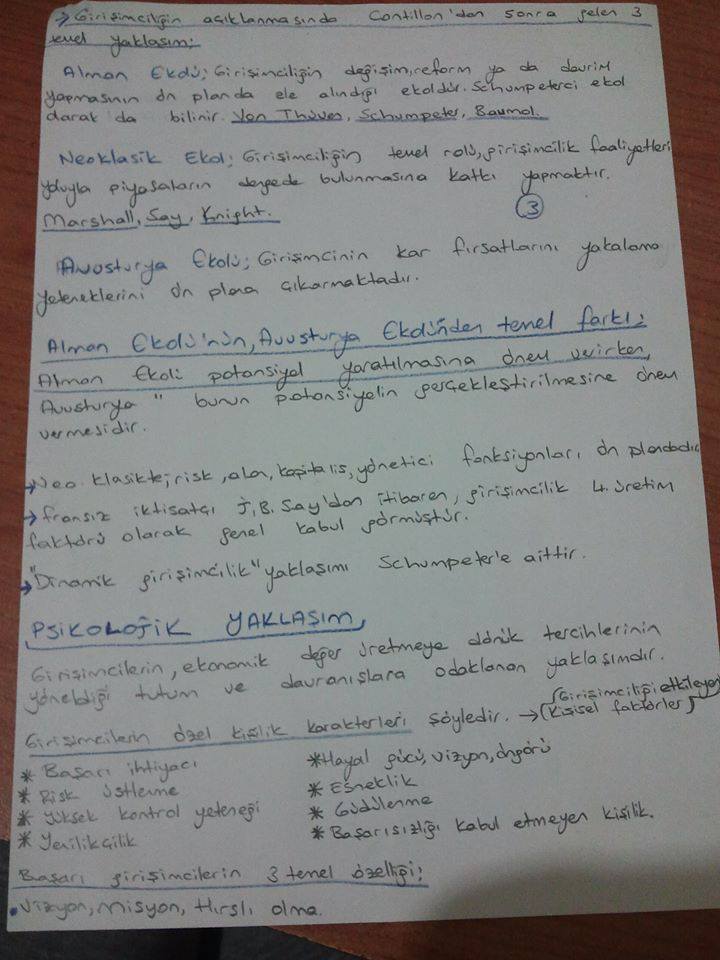 → Girişimciliğin açıklanmasında Contillon'dan sonra gelen 3
temel yaklaşım:
Alman Ekolü; Girişimciliğin değişim, reform ya da devrim
yapmasının ön planda ele alındığı ekoldür. Schumpeterci ekol
olarak da bilinir. Von Thünen, Schumpeter, Baumol.
Neoklasik Ekol; Girişimciliğin temel rolü, girişimcilik faaliyetleri
yoluyla piyasaların dengede bulunmasına katkı yapmaktır.
Marshall, Say, Knight.
3
Avusturya Ekolü; Girişimcinin kar fırsatlarını yakalama
yeteneklerini ön plana çıkarmaktadır.
Alman Ekolü'nün, Avusturya Ekolünden temel farkı:
Alman Ekolü potansiyal yaratılmasına önem verirken,
Avusturya " bunun potansiyelin gerçekleştirilmesine önem
vermesidir.
→ Neo klasikte; risk, alan, kapitalis, yönetici fonksiyonları ön plandadır
→ fransız iktisatçı J.B. Say'dan itibaren, girişimcilik 4. üretim
faktörü olarak genel kabul görmüştür.
→ "Dinamik girişimcilik" yaklaşımı Schumpeter'e aittir.
PSİKOLOJİK YAKLAŞIM,
Girişimcilerin, ekonomik değer üretmeye dönük tercihlerinin
yöneldiği tutum ve davranışlara odaklanan yaklaşımdır.
Girişimcilerin özel kişilik karakterleri şöyledir. → (Girişimciliği etkileyen
kişisel faktörler)
* Başarı ihtiyacı
* Risk üstlenme
* Yüksek kontrol yeteneği
* Yenilikçilik
* Hayal gücü, vizyon, öngörü
* Esneklik
* Güdülenme
* Başarısızlığı kabul etmeyen kişilik.
Başarı girişimcilerin 3 temel özelliği:
• Vizyon, Misyon, Hırslı olma.